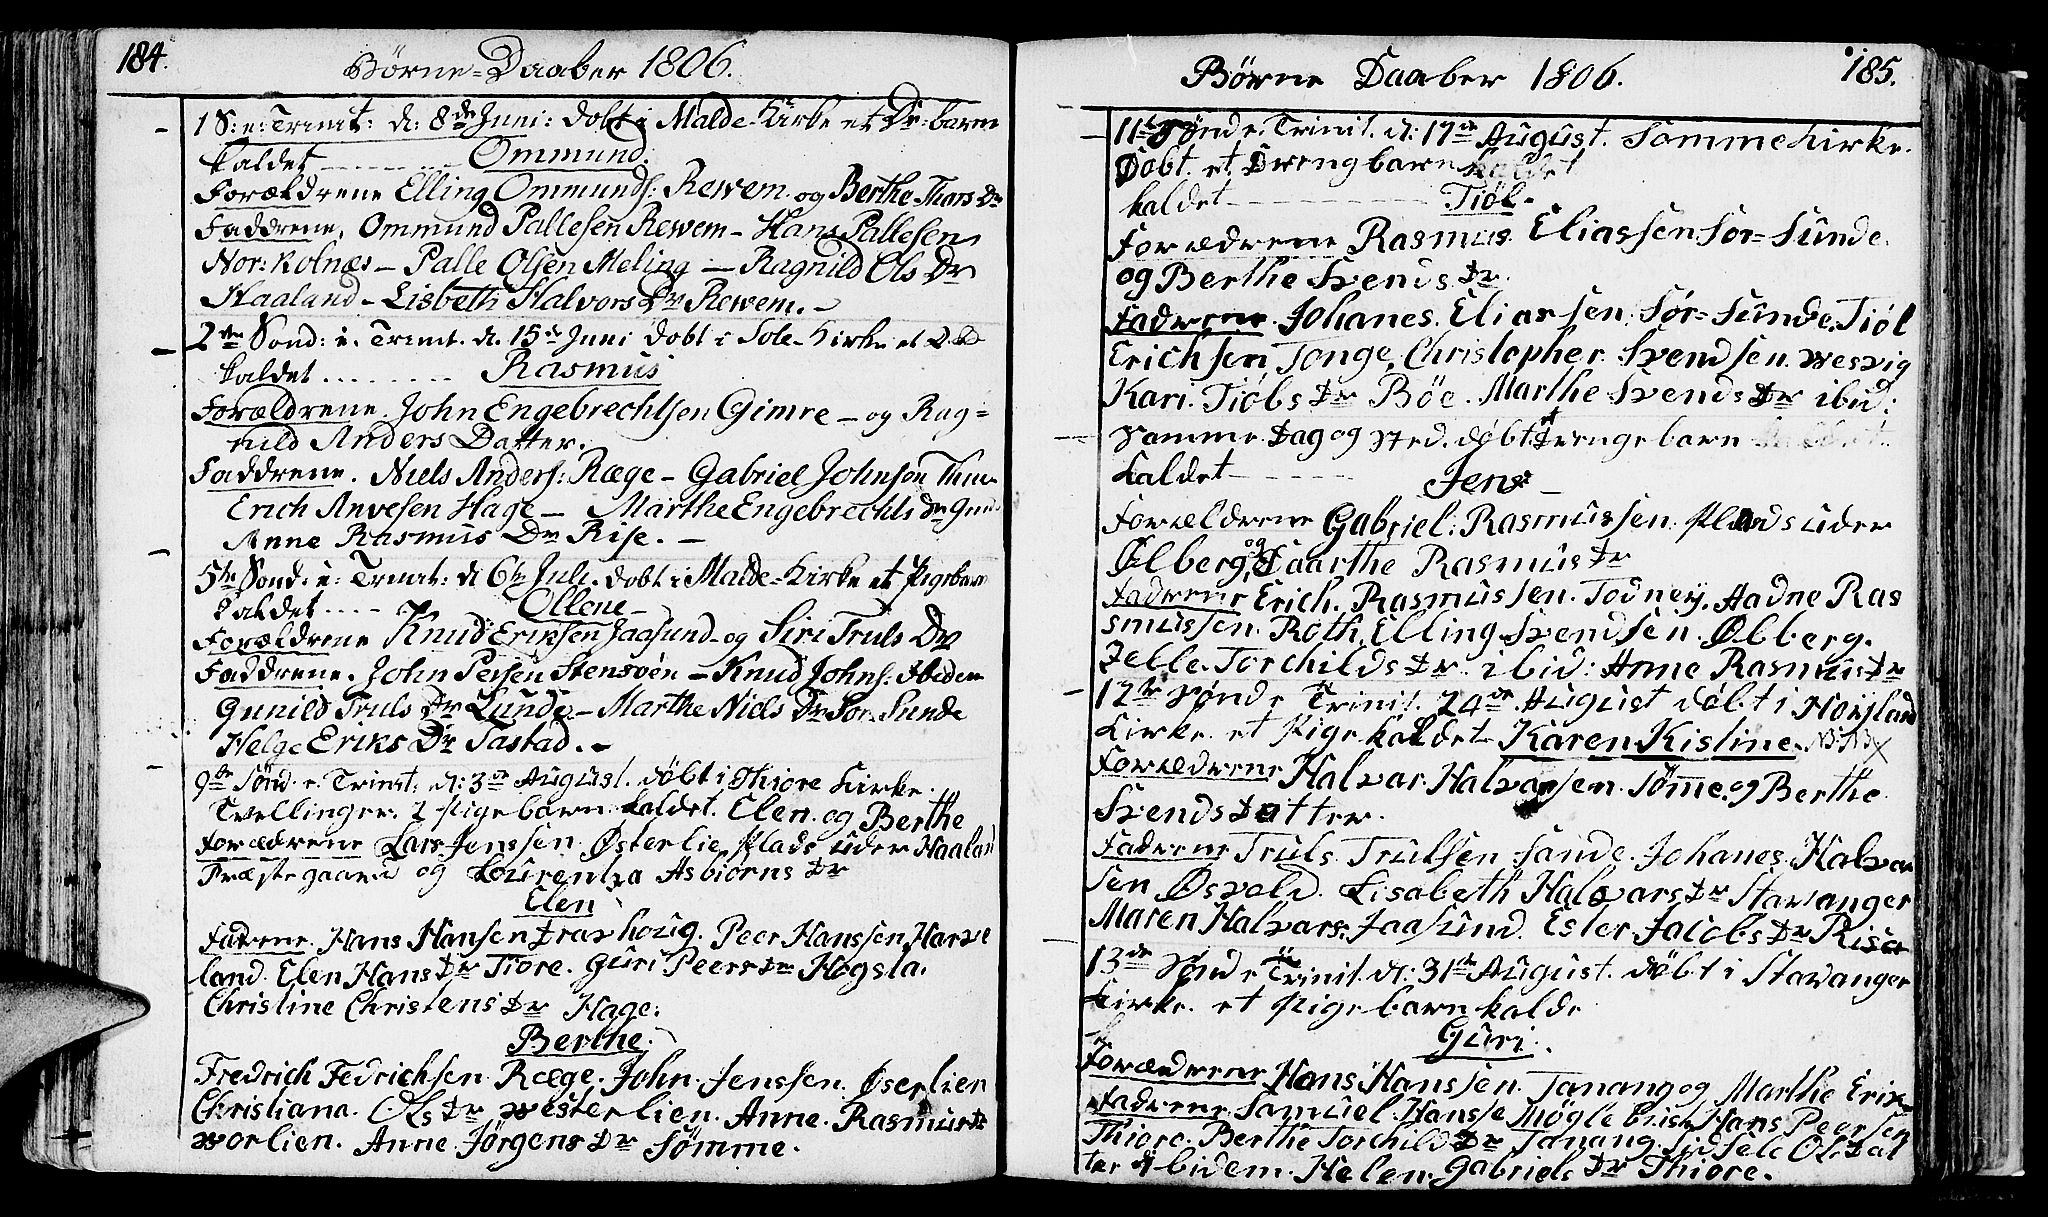 184.
Börne-Daaber 1806.
1 S: e: Trinit: d: 8de Juni: dobt i Malde Kirke et Dr: barn
kaldet Ommund.
Forældrene Elling Ommunds: Rewem. og Berthe Thors Dr
Faddrene, Ommund Pallesen Rewem - Hans Pallesen
Nor: Kolnæs - Palle Olsen Meling - Ragnild Ols Dr
Haaland - Lisbeth Halvors Dr Rewem. -
2den Sond: e. Trinit. d. 15de Juni dobt i Sole-Kirke et
kaldet ........ Rasmus
Forældrene. John Engebrechtsen Gimre - og Rag=
nild Anders Datter.
Faddrene. Niels Anders: Ræge - Gabriel Johnson
Erich Anvesen Hage - Marthe Engebrechts Dr
Anne Rasmus Dr Rise. -
5te Sond: e: Trinit: d 6te Juli. dobt i Malde-Kirke et Pigebarn
kaldet .... Ollene -
Forældrene Knud Eriksen Jaasund - og Siri Truls Dr
Faddrene. John Persen Stensoën - Knud Johns: ibidem
Gunild Truls Dr Sunde - Marthe Niels Dr Sor-Sunde
Helge Eriks Dr Sastad. -
9de Sønd. e. Trinit: d: 3de August. döbt i Thiore Kirke.
Tvellinger. 2 Pigebarn kaldet. Elen. og Berthe
Forædrene Lars Jenssen Østerlie Plads under Haaland
Præstegaard og Lourentza Asbiörns Dr
Elen
Fadrene. Hans Hansen. Peer Hanssen Harve
land. Elen Hans Dr Tiore. Guri Peers Dr Hogsta.
Christine Christens Dr Hage:
Berthe.
Fredrich Fedrichsen Ræge. John. Jenssen. Øserlien
Christiana. Ols Dr Westerlien. Anne. Rasmus Dr
worlien. Anne Jørgens Dr Sømme.
Børne Daaber 1806.
185.
11te Sönd e. Trinit. d: 17de August. Somme Kirke.
Döbt. et Drengbarn kaldet
kaldet Tiöl.
Forædrene Rasmus Eliassen Sör-Sunde
og Berthe Svends Dr
Fadrene. Johanes. Eliassen. Sør-Sunde. Tiøl
Erichsen Tonge, Christopher Svendsen. Wesvig
Kari. Tiöbs Dr Böe. Marthe Svends Dr ibid:
Samme Dag og sted. döbt et Drengebarn
kaldet Jens
Forældrene Gabriel: Rasmussen. Plads under
Ølberg, og Taarthe Rasmus Dr
Fadrene Erich. Rasmussen. Todney. Aadne Ras
smussen. Roth. Elling Svendsen. Ølberg.
Zelle. Torchilds Dr. ibid: Anne Rasmus Dr
12te Sønd e Trinit. 24de August döbt i Hoyland
Kirke. et Pige kaldet Karen Kistine. NB NB
Forædrene Halvar Halvarsen. Sømme. og Berthe
Svends Datter.
Fadrene Truls Trulsen Sande. Johanes Halvar
sen Øsvold. Lisabeth Halvars Dr Stavanger
Maren Halvars. Jaasund. Ester Jacobs Dr Risa
13de Sønd e Trinit. d: 31te August. döbt i Stavanger
Kirke. et Pigebarn kalde
Guri.
Forædrene Hans Hanssen. Tanang og Marthe Erix
Fadrene Samuel. Hansse Møgle Hans Peersen
Thiore. Berthe Torchilds Dr Tanang. Sidsele Ols Dat
ter ibidem. Helen Gabriels Dr Thiore.